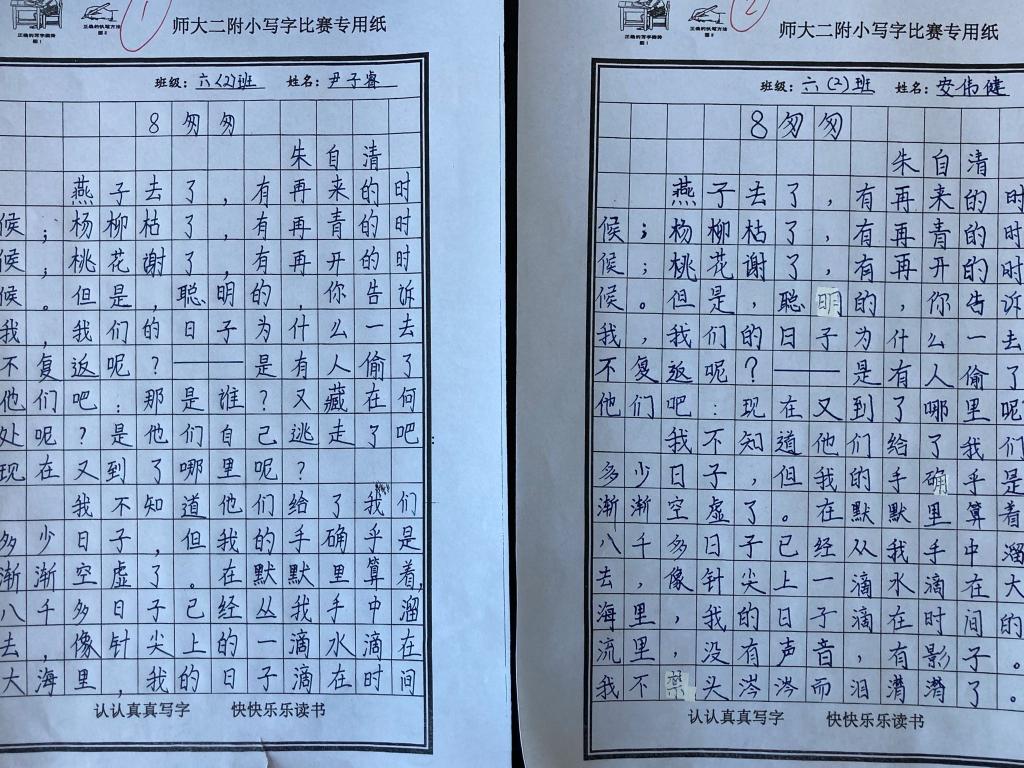 1
正确的写字姿势
图1
正确的执笔方法
图2
师大二附小写字比赛专用纸
班级：六(2)班 姓名：尹子睿
8 匆匆
朱自清
燕子去了，有再来的时
候；杨柳枯了，有再青的时
候；桃花谢了，有再开的时
候。但是，聪明的，你告诉
我，我们的日子为什么一去
不复返呢？——是有人偷了
他们吧：那是谁？又藏在何
处呢？是他们自己逃走了吧：
现在又到了哪里呢？
我不知道他们给了我们
多少日子，但我的手确乎是
渐渐空虚了。在默默里算着，
八千多日子已经丛我手中溜
去，像针尖上的一滴水滴在
大海里，我的日子滴在时间
认认真真写字 快快乐乐读书
2
正确的写字姿势
图1
正确的执笔方法
图2
师大二附小写字比赛专用纸
班级：六(2)班 姓名：安伟健
8 匆匆
朱自清
燕子去了，有再来的时
候；杨柳枯了，有再青的时
候；桃花谢了，有再开的时
候。但是，聪明的，你告诉
我，我们的日子为什么一去
不复返呢？——是有人偷了
他们吧：现在又到了哪里呢
我不知道他们给了我们
多少日子，但我的手确乎是
渐渐空虚了。在默默里算着
八千多日子已经从我手中溜
去，像针尖上一滴水滴在大
海里，我的日子滴在时间的
流里，没有声音，有影子。
我不禁头涔涔而泪潸潸了。
认认真真写字 快快乐乐读书